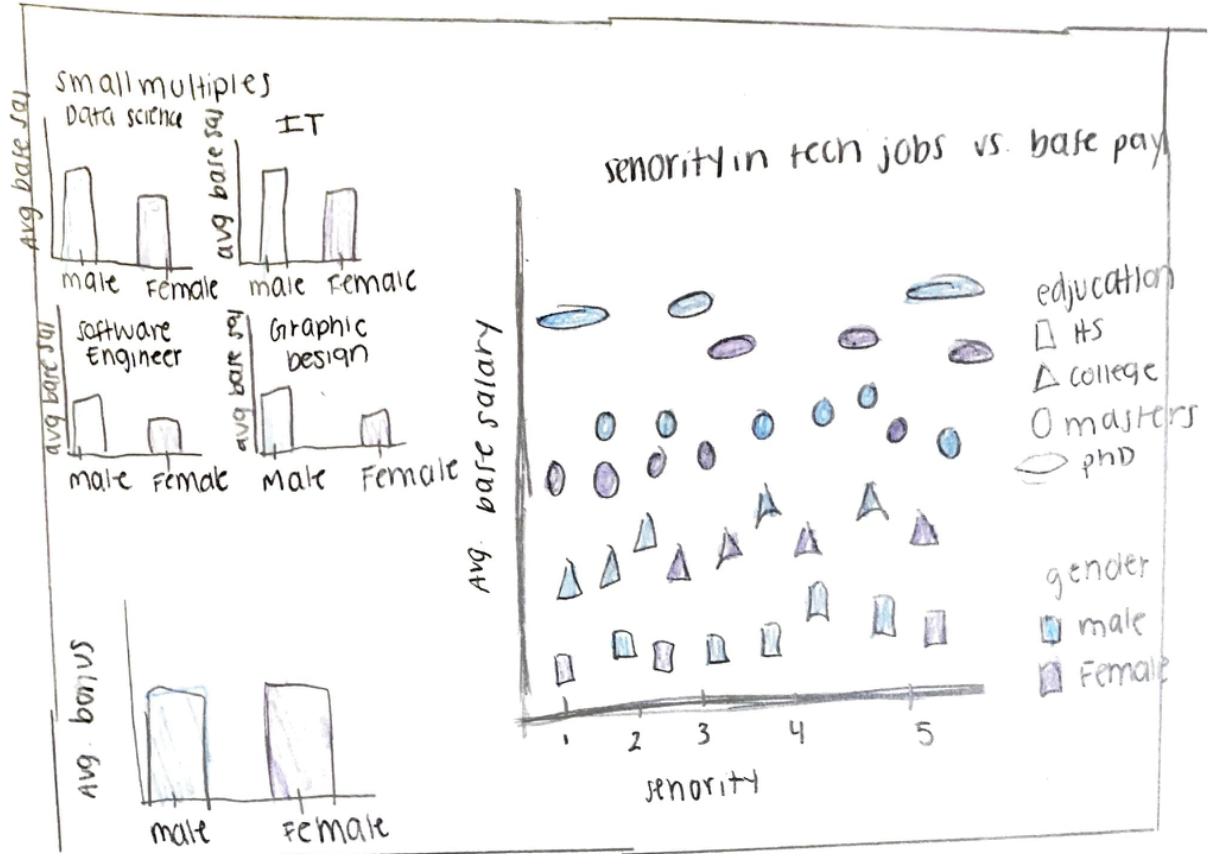 small multiples
Data science
Avg base sal
male Female
IT
avg base sal
male Female
software
Engineer
avg base sal
male Female
Graphic
Design
avg base sal
Male Female
Avg. bonus
male Female
senority in tech jobs vs. base pay
Avg. base salary
1 2 3 4 5
senority
edjucation
HS
college
masters
phD
gender
male
Female